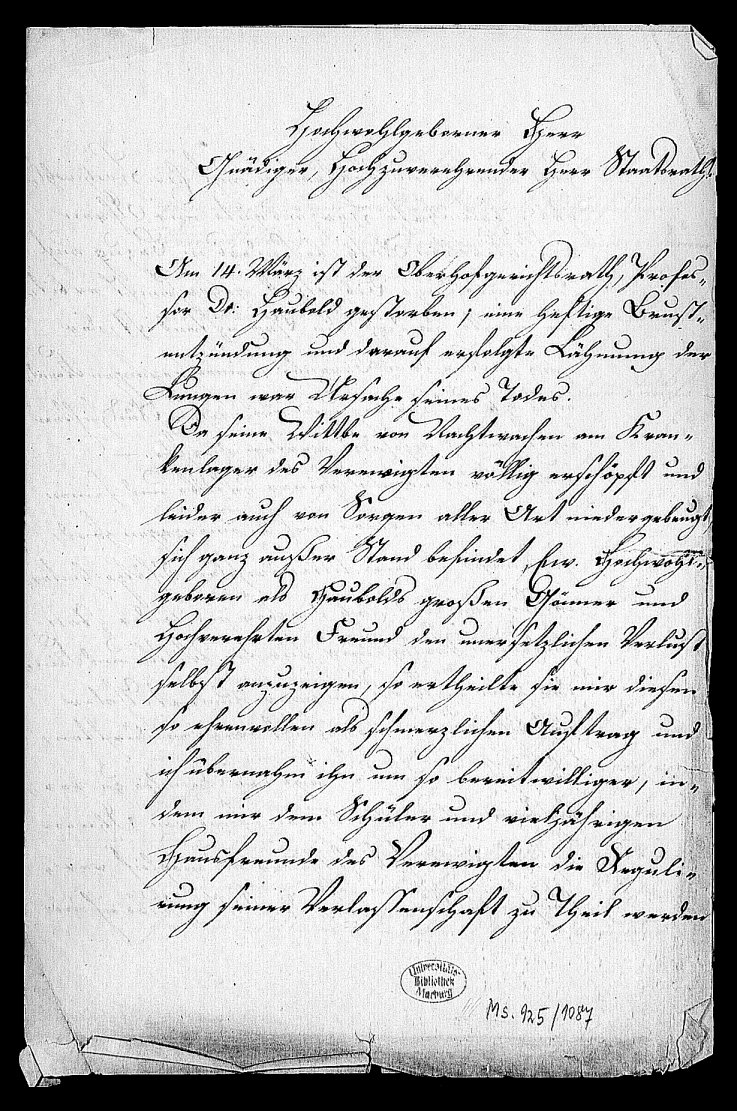 Hochwohlgeborner Herr
Gnädiger, Hochzuverehrender Herr Staatsrath!
Am 14. März ist der Oberhofgerichtsrath, Profes-
sor Dr. Haubold gestorben; eine heftige Brust-
entzündung und darauf erfolgte Lähmung der
Lungen war Ursache seines Todes.
Da seine Wittbe von Nachtwachen am Kran-
kenlager des Verewigten völlig erschöpft und
leider auch von Sorgen aller Art niedergebeugt
sich ganz außer Stand befindet, Ew. Hochwohl-
geboren als Haubolds großen Gönner und
Hochverehrten Freund den unersetzlichen Verlust
selbst anzuzeigen, so ertheilte sie mir diesen
so ehrenvollen als schmerzlichen Auftrag und
ich übernahm ihn um so bereitwilliger, in-
dem mir dem Schüler und vieljährigen
Hausfreunde des Verewigten die Reguli-
rung seiner Verlassenschaft zu Theil werden
Universitäts-
Bibliothek
Marburg
Ms. 925/1087